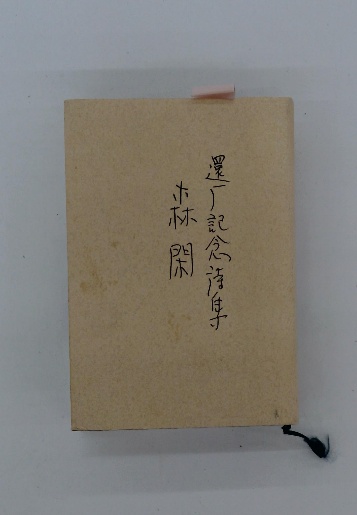 還厂記念詩集
森閑